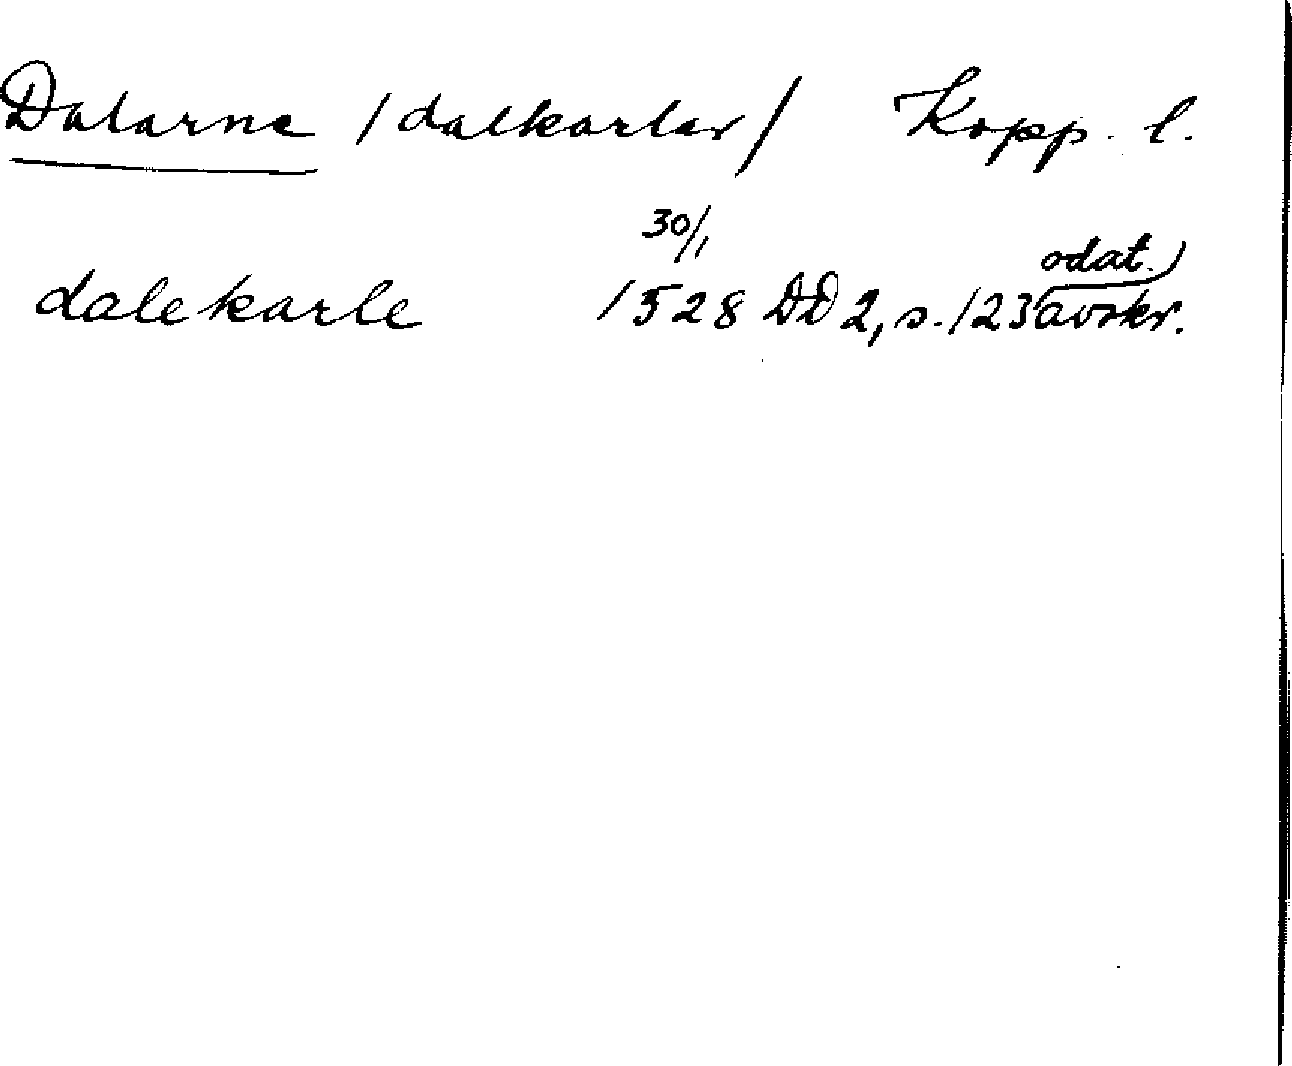 Dalarne /dalkarlar/ Kopp. l.
30/1
odat.)
dalekarle 1528 DD 2, s. 123 avskr.